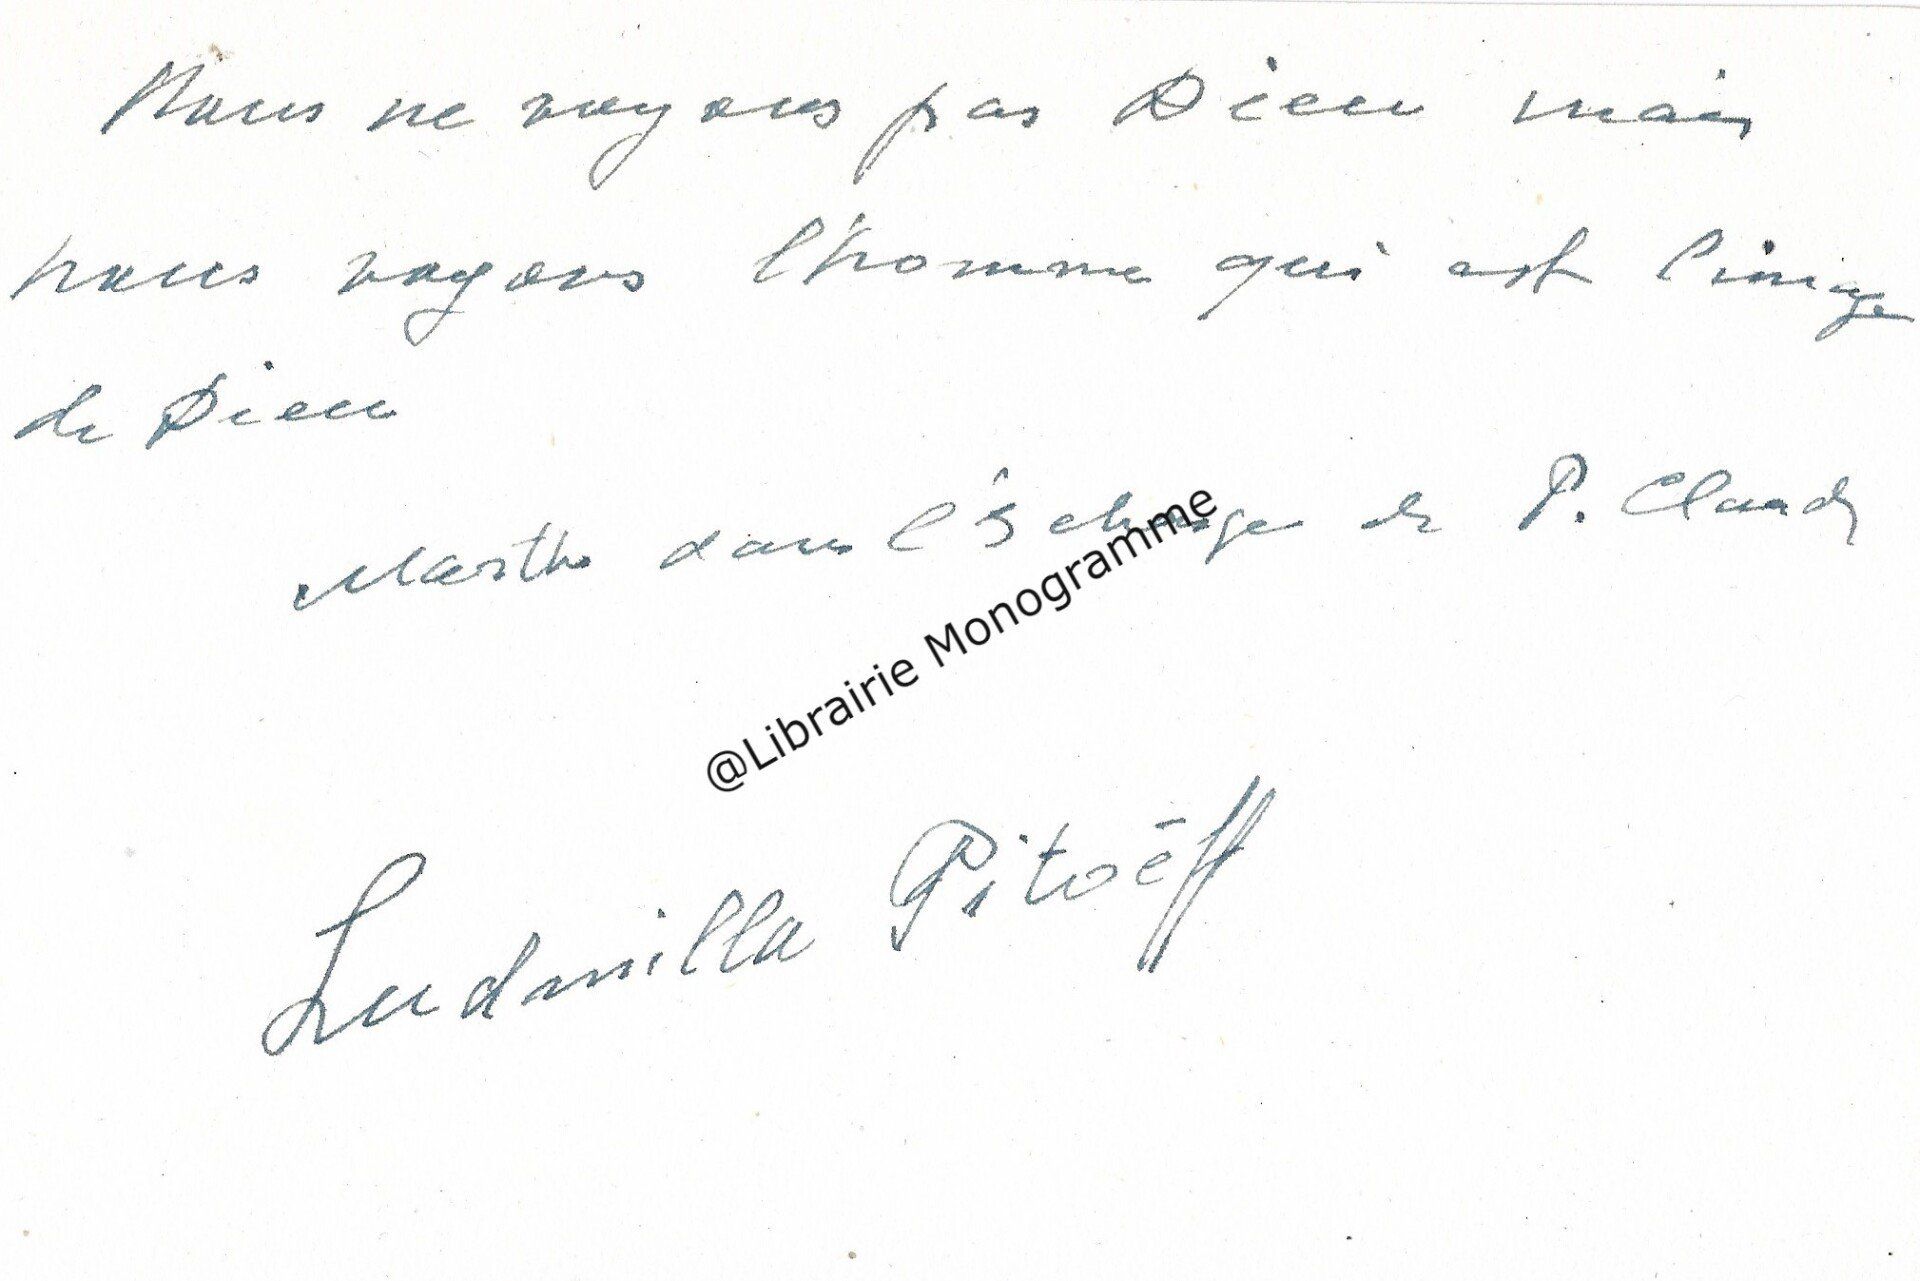 Nous ne voyons pas Dieu mais
nous voyons l'homme qui est l'image
de Dieu
Marthe dans l'Echange de P. Claudel
@Librairie Monogramme
Ludmilla Pitoëff